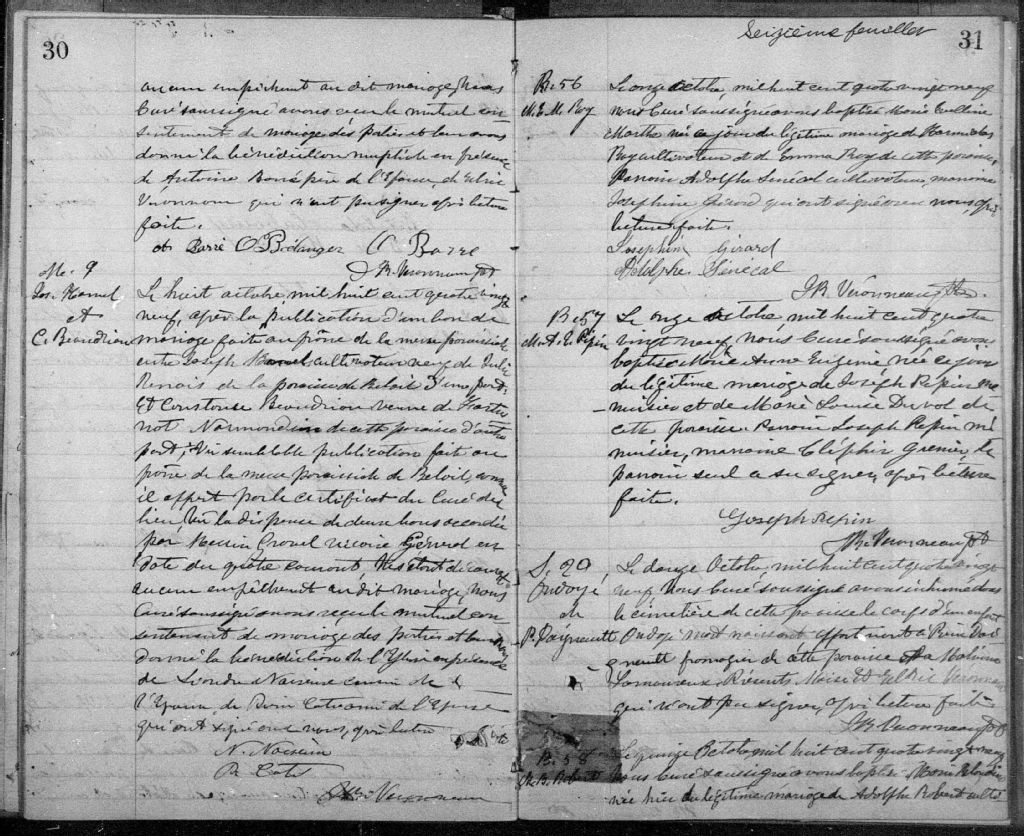 30
aucun empêchement au dit mariage, Nous
Curé soussigné avons reçu le mutuel con
sentement de mariage des parties et leur avons
donné la bénédiction nuptiale en présence
de Antoine Barré père de l'Epoux, de
Véronneau qui n'ont pu signer après lecture
faite.
Barré O Bélanger O Barre
J B. Véronneau Ptr
M. 9
Jos. Hamel
et
C. Beaudrion
Le huit octobre, mil huit cent quatre vingt
neuf, après la publication d'un ban de
mariage faite au prône de la messe paroissiale
entre Joseph Hamel cultivateur veuf de Julie
de la paroisse de Belœil d'une part,
Et Constance Beaudrion veuve de
Normandin de cette paroisse d'autre
part; Vu semblable publication faite au
prône de la messe paroissiale de Belœil, comme
il appert par le certificat du Curé du
lieu, Vu la dispense de deux bans accordée
par Messire Gravel vicaire Général en
date du quatre courant, N'étant découvert
aucun empêchement au dit mariage, Nous
Curé soussigné avons reçu le mutuel con
sentement de mariage des parties et leur avons
donné la bénédiction de l'Eglise en présence
de Naisse cousin de
l'Epoux de de l'Epouse
qui ont signé avec nous, après lecture
N.
B.
J B. Véronneau
Seizième feuillet
31
B. 56
M. E. M. Roy
Le onze Octobre, mil huit cent quatre vingt neuf
nous Curé soussigné avons baptisé Marie
Martha née ce jour du légitime mariage de
Roy cultivateur et de Emma Roy de cette paroisse,
Parrain Adolphe Sénécal cultivateur, marraine
Joséphine Girard qui ont signé avec nous, après
lecture faite.
Josephine Girard
Adolphe Sénécal
J B. Véronneau Ptr.
B. 57
M. A. E. Pepin
Le onze Octobre mil huit cent quatre
vingt neuf, nous Curé soussigné avons
baptisé Marie Anna Eugenie née ce jour
du légitime mariage de Joseph Pepin me
nuisier et de Marie Louise Duval de
cette paroisse. Parrain Joseph Pepin me
nuisier, marraine Cléphire Grenier, le
parrain seul a su signer, après lecture
faite.
Joseph Pepin
J B. Véronneau Ptr
S. 29
Ondoyé
de
P. Daigneault
Le douze Octobre, mil huit cent quatre vingt
neuf Nous Curé soussigné avons inhumé dans
le cimetière de cette paroisse le corps d'un enfant
Ondoyé mort naissant appartenant à Pierre Dai
gneault fromager de cette paroisse et à Malvina
Lamoureux. Présents Moise et Véronneau
qui n'ont pu signer, après lecture faite
J B. Véronneau Ptr
B. 58
M. B. Robert
Le quinze Octobre mil huit cent quatre vingt neuf
nous Curé soussigné avons baptisé Marie Blandine
née hier du légitime mariage de Adolphe Robert culti